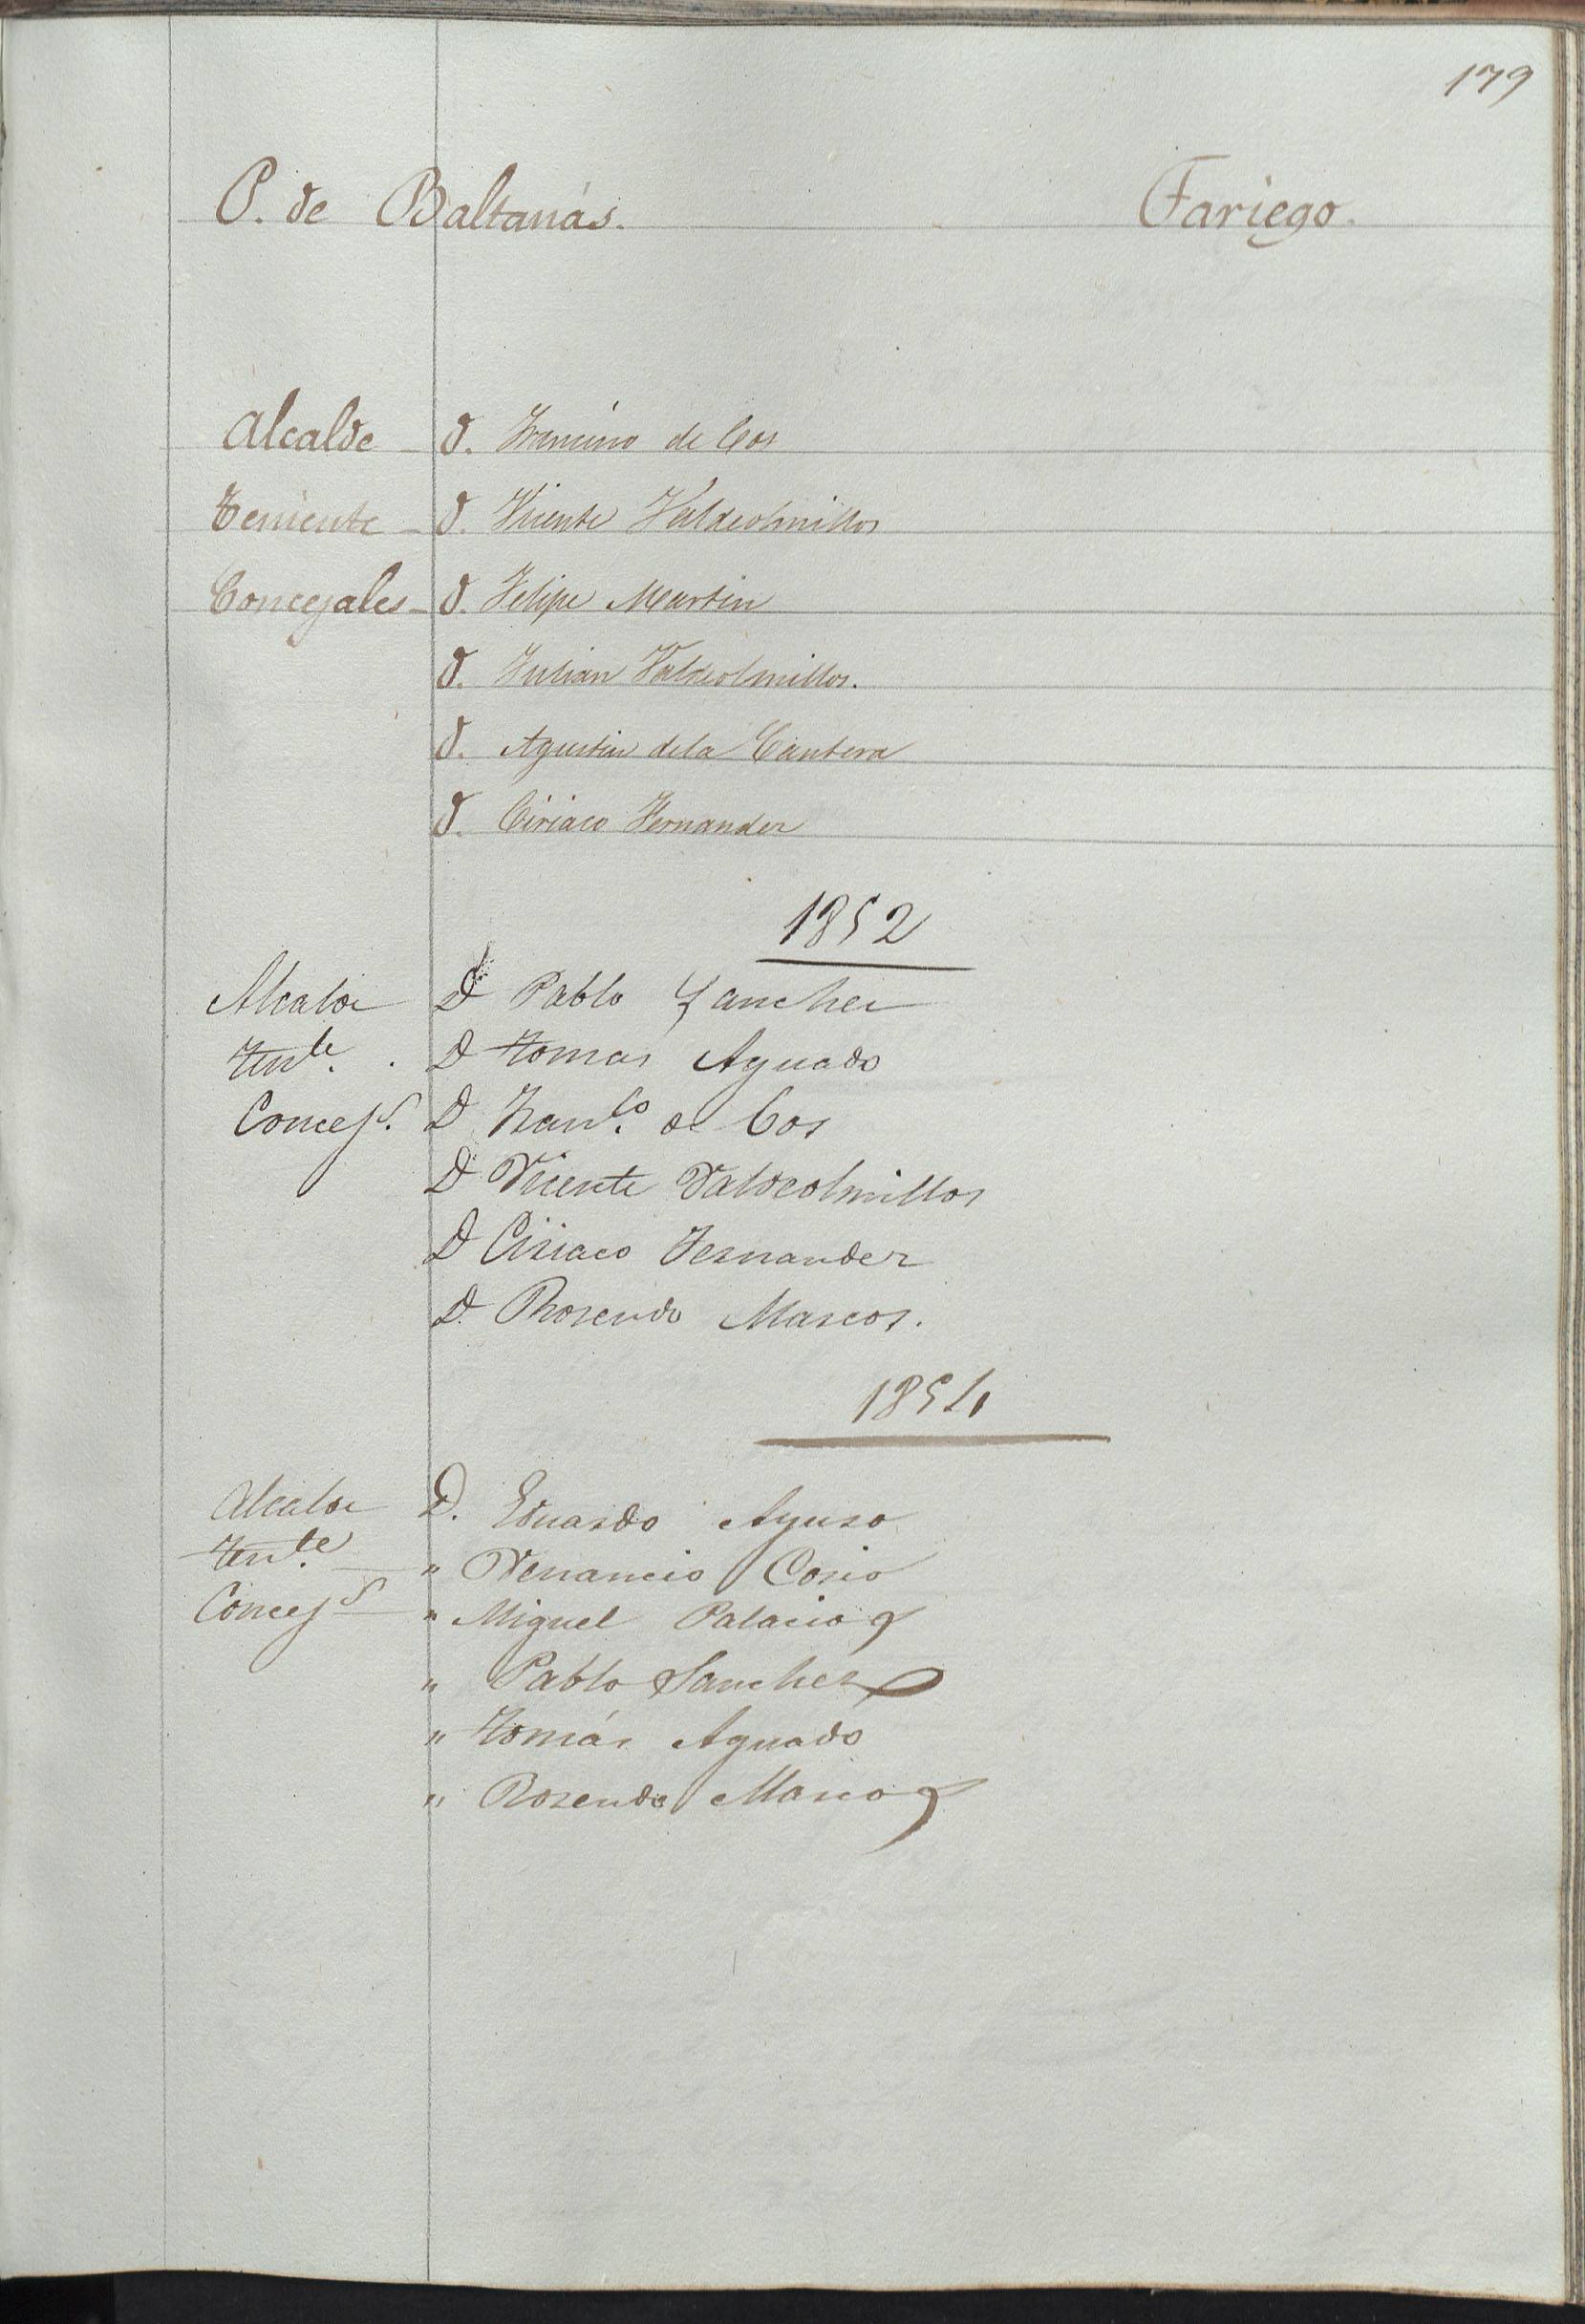 179
P. de Baltanás. Tariego.
Alcalde - D. Francisco de Cos
Teniente - D. Vicente Valdeolmillos
Concejales - D. Felipe Martin
D. Julian Valdeolmillos.
D. Agustin dela Cantera
D. Ciriaco Fernandez
1852
Alcalde D Pablo Sanchez
Tente. . D Tomas Aguado
Concejs. D Franco. de Cos
D Vicente Valdeolmillos
D Ciriaco Fernandez
D. Rosendo Marcos.
1854
Alcalde D. Eduardo Ayuso
Tente. — " Venancio Cosio
Concejs — " Miguel Palacios
" Pablo Sanchez
" Tomás Aguado
" Rosendo Marcos